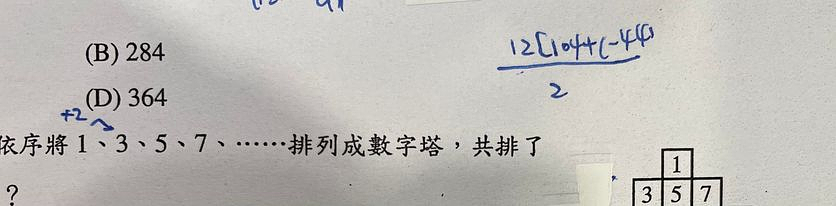 (B) 284
12[104+(-44)
2
(D) 364
+2
依序將 1、3、5、7、……排列成數字塔，共排了
1
?
3 5 7